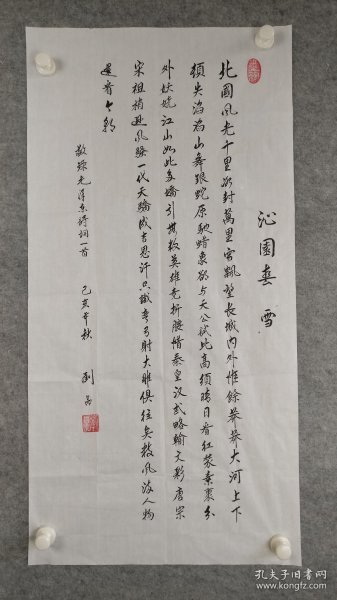 沁園春 雪
北國风光千里冰封萬里雪飄望長城内外惟餘莽莽大河上下
顿失滔滔山舞銀蛇原馳蜡象欲与天公试比高须晴日看红装素裹分
外妖娆江山如此多嬌引無数英雄竞折腰惜秦皇汉武略輸文彩唐宗
宋祖稍逊风骚一代天驕成吉思汗只識弯弓射大雕俱往矣数风流人物
還看今朝
敬錄毛泽东诗词一首
己亥年秋
刘
孔夫子旧书网
www.kongfz.com